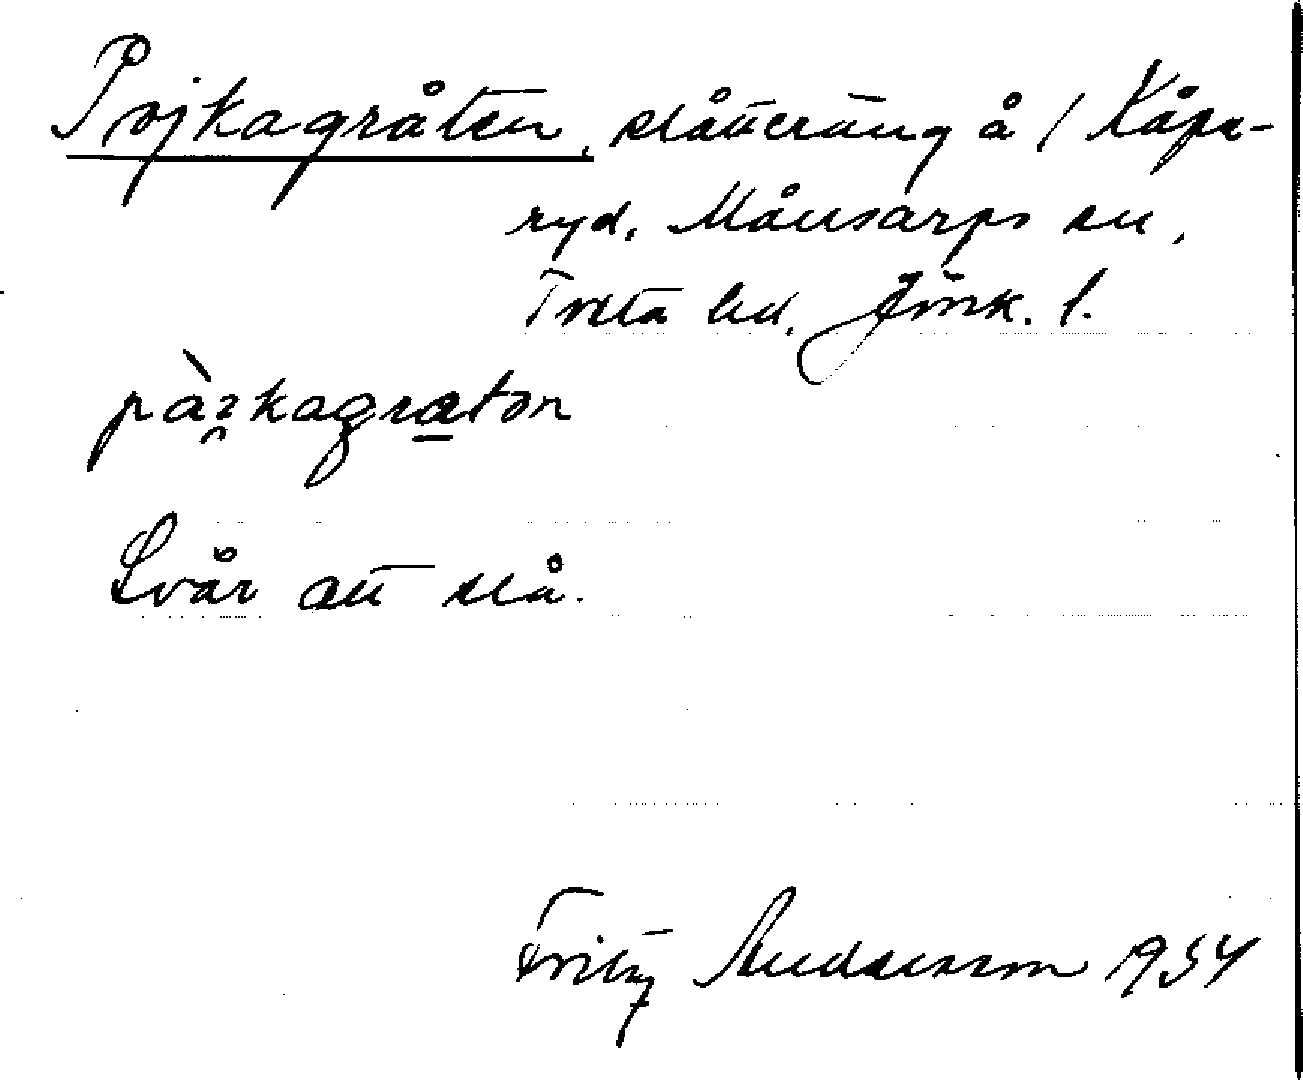 Pojkagråten, slåtteräng å 1 Kåpe-
ryd, Månsarps sn,
Tveta hd, Jönk. l.
Svår att slå.
Fritz Andersson 1934